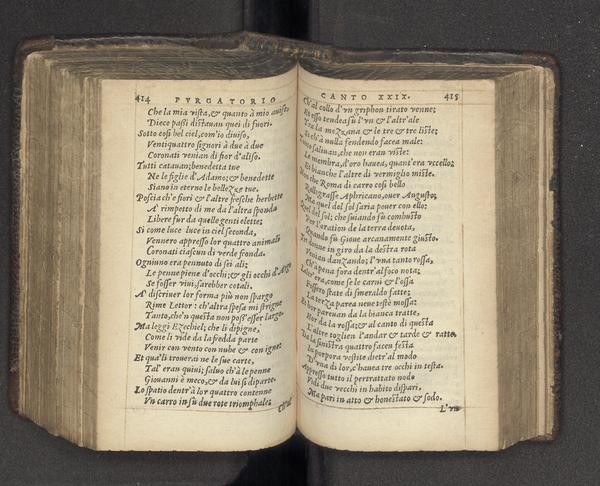 414 PVRGATORIO
Che la mia vista, & quanto à mio auiso,
Diece passi distauan quei di fuori.
Sotto così bel ciel, com'io diuiso,
Ventiquattro signori à due à due
Coronati venian di fior d'aliso.
Tutti cantauan; benedetta tue
Ne le figlie d'Adamo; & benedette
Siano in eterno le bellezze tue.
Poscia ch'e fiori & l'altre fresche herbette
A' rimpetto di me da l'altra sponda
Libere fur da quelle genti elette;
Si come luce luce in ciel seconda,
Vennero appresso lor quattro animali
Coronati ciascun di verde fronda.
Ogniuno era pennuto di sei ali;
Le penne piene d'occhi; & gli occhi d'Argo
Se fosser viui, sarebber cotali.
A' discriuer lor forma più non spargo
Rime Lettor: ch'altra spesa mi strigne
Tanto, che'n questa non poss' esser largo.
Ma leggi Ezechiel; che li dipigne,
Come li vide da la fredda parte
Venir con vento con nube & con igne:
Et qua'li trouerai ne le sue carte,
Tal' eran quiui; saluo ch'à le penne
Giouanni è meco, & da lui si diparte.
Lo spatio dentr'à lor quattro contenne
Vn carro in sù due rote triomphale;
Ch'al
CANTO XXIX. 415
Ch'al collo d'vn griphon tirato venne;
Et esso tendea sù l'vn & l'altr'ale
Tra la mezzana & le tre & tre liste;
Si ch'à nulla fendendo facea male:
Tanto saliuan, che non eran viste:
Le membra, d'oro hauea, quant'era vccello;
Et bianche l'altre di vermiglio miste.
Non che Roma di carro così bello
Rallegrasse Aphricano, ouer Augusto;
Ma quel del sol saria pouer con ello:
Quel del sol; che suiando fù combusto
Per l'oration de la terra deuota,
Quando fù Gioue arcanamente giusto.
Tre donne in giro da la destra rota
Venian danzando; l'vna tanto rossa,
Ch'à pena fora dentr'al foco nota;
L'altr'era, come se le carni & l'ossa
Fossero state di smeraldo fatte;
La terza parea neue testè mossa:
Et hor pareuan da la bianca tratte,
Hor da la rossa; & al canto di questa
L'altre toglien l'andar & tarde & ratte.
Da la sinistra quattro facen festa
In porpora vestite dietr'al modo
D'vna di lor, c'hauea tre occhi in testa.
Appresso tutto il pertrattato nodo
Vidi due vecchi in habito dispari,
Ma pari in atto & honestato & sodo.
L'vn